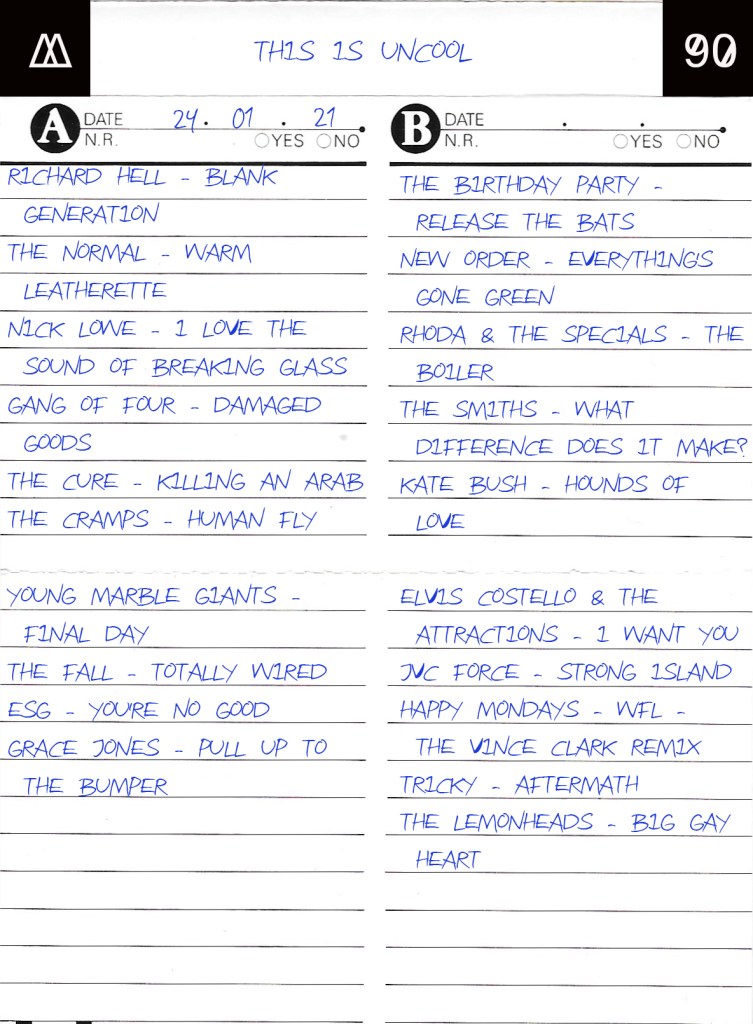 THIS IS UNCOOL
90
A DATE 24. 01. 21
N.R. YES NO
RICHARD HELL - BLANK
GENERATION
THE NORMAL - WARM
LEATHERETTE
NICK LOWE - I LOVE THE
SOUND OF BREAKING GLASS
GANG OF FOUR - DAMAGED
GOODS
THE CURE - KILLING AN ARAB
THE CRAMPS - HUMAN FLY
YOUNG MARBLE GIANTS -
FINAL DAY
THE FALL - TOTALLY WIRED
ESG - YOU'RE NO GOOD
GRACE JONES - PULL UP TO
THE BUMPER
B DATE . .
N.R. YES NO
THE BIRTHDAY PARTY -
RELEASE THE BATS
NEW ORDER - EVERYTHING'S
GONE GREEN
RHODA & THE SPECIALS - THE
BOILER
THE SMITHS - WHAT
DIFFERENCE DOES IT MAKE?
KATE BUSH - HOUNDS OF
LOVE
ELVIS COSTELLO & THE
ATTRACTIONS - I WANT YOU
JVC FORCE - STRONG ISLAND
HAPPY MONDAYS - WFL -
THE VINCE CLARK REMIX
TRICKY - AFTERMATH
THE LEMONHEADS - BIG GAY
HEART